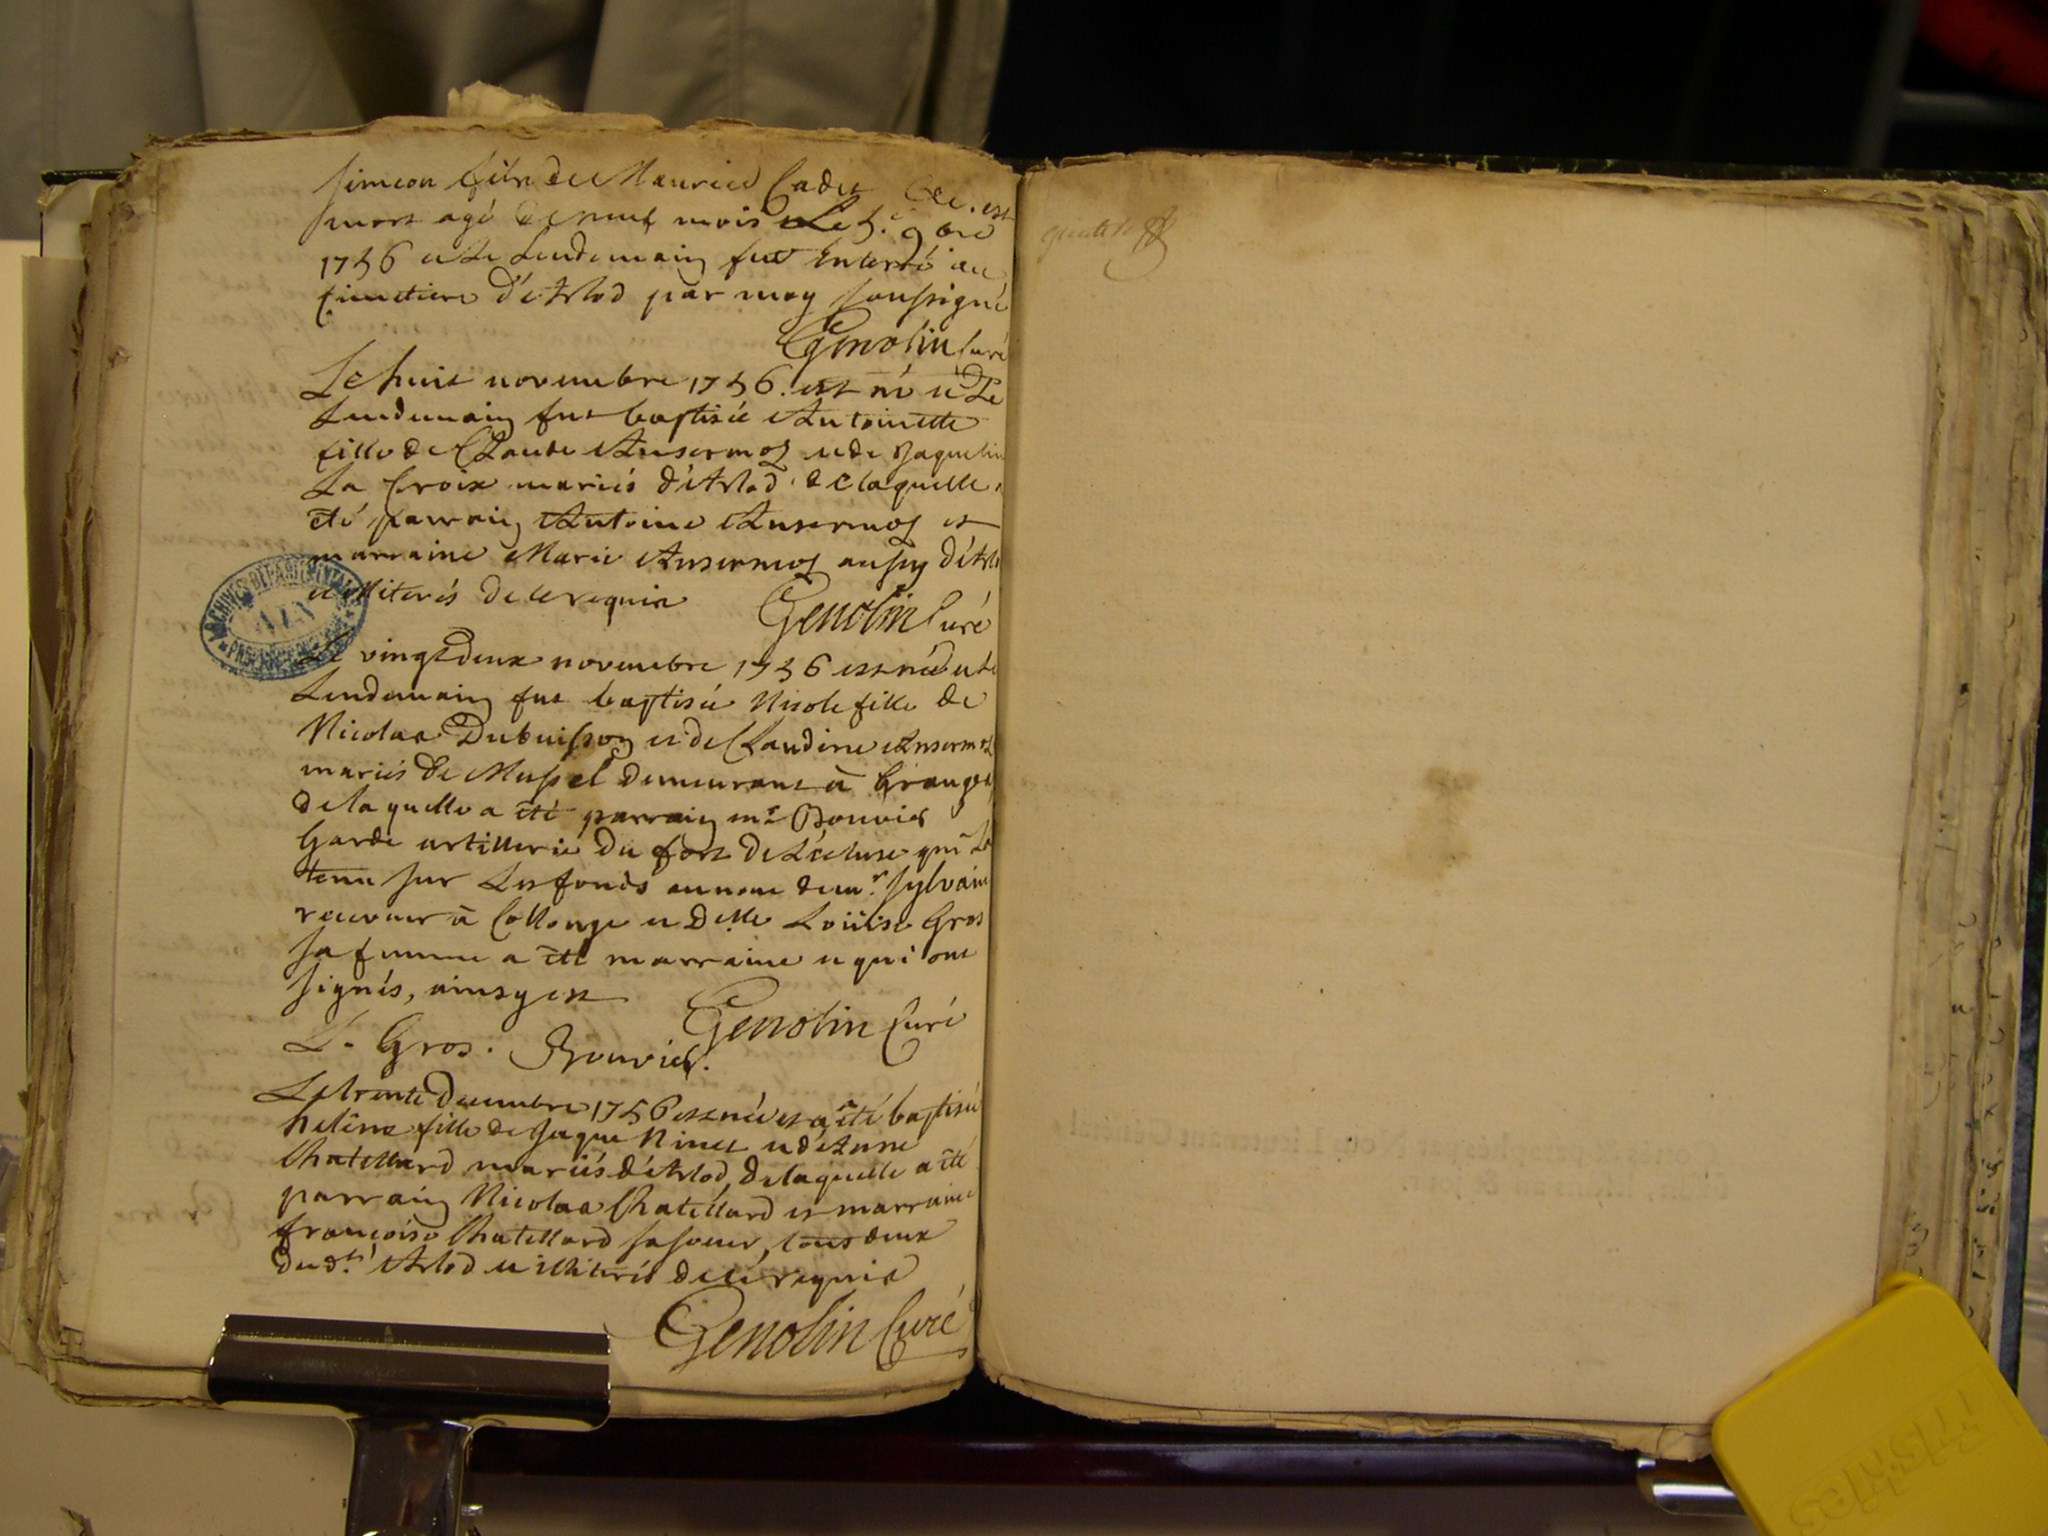 Simeon fils de Maurice Cadet est
mort agé de neuf mois Le 5.e 9bre
1756 et Le Lendemain fut Enterré au
Cimetiere d'Arlod par moy soussigné
Genolin Curé
Le huit novembre 1756. est né et Le
Lendemain fut baptisée Antoinette
fille de Claude Ansermoz et de Jaqueline
La Croix mariés d'Arlod. de laquelle a
êté parrain Antoine Ansermoz et
marraine Marie Ansermoz aussy d'Arlod
et illiterés de ce requis
Genolin Curé
ARCHIVES DEPARTEMENTALES
AIN
Le vingt deux novembre 1756 est née et Le
Lendemain fut baptisée Nicole fille de
Nicolas Dubuisson et de Claudine Ansermoz
mariés de Mussel demeurant à Granges
de laquelle a êté parrain mr Bouvier
Garde artillerie du fort de L'écluse qui L'a
tenu sur Les fonds au nom de mr. Sylvain
receveur à Collonge et Delle Loüise Gros
sa femme a êté marraine et qui ont
signés, ainsy est
Genolin Curé
L. Gros. Bouvier.
Le trente Decembre 1756 est née et a êté baptisée
helene fille de Jaque Ninet et d'Anne
Chatellard mariés d'Arlod, de laquelle a êté
parrain Nicolas Chatellard et marraine
françoise Chatellard sa soeur, tous deux
dud.t Arlod et illiterés de ce requis
Genolin Curé